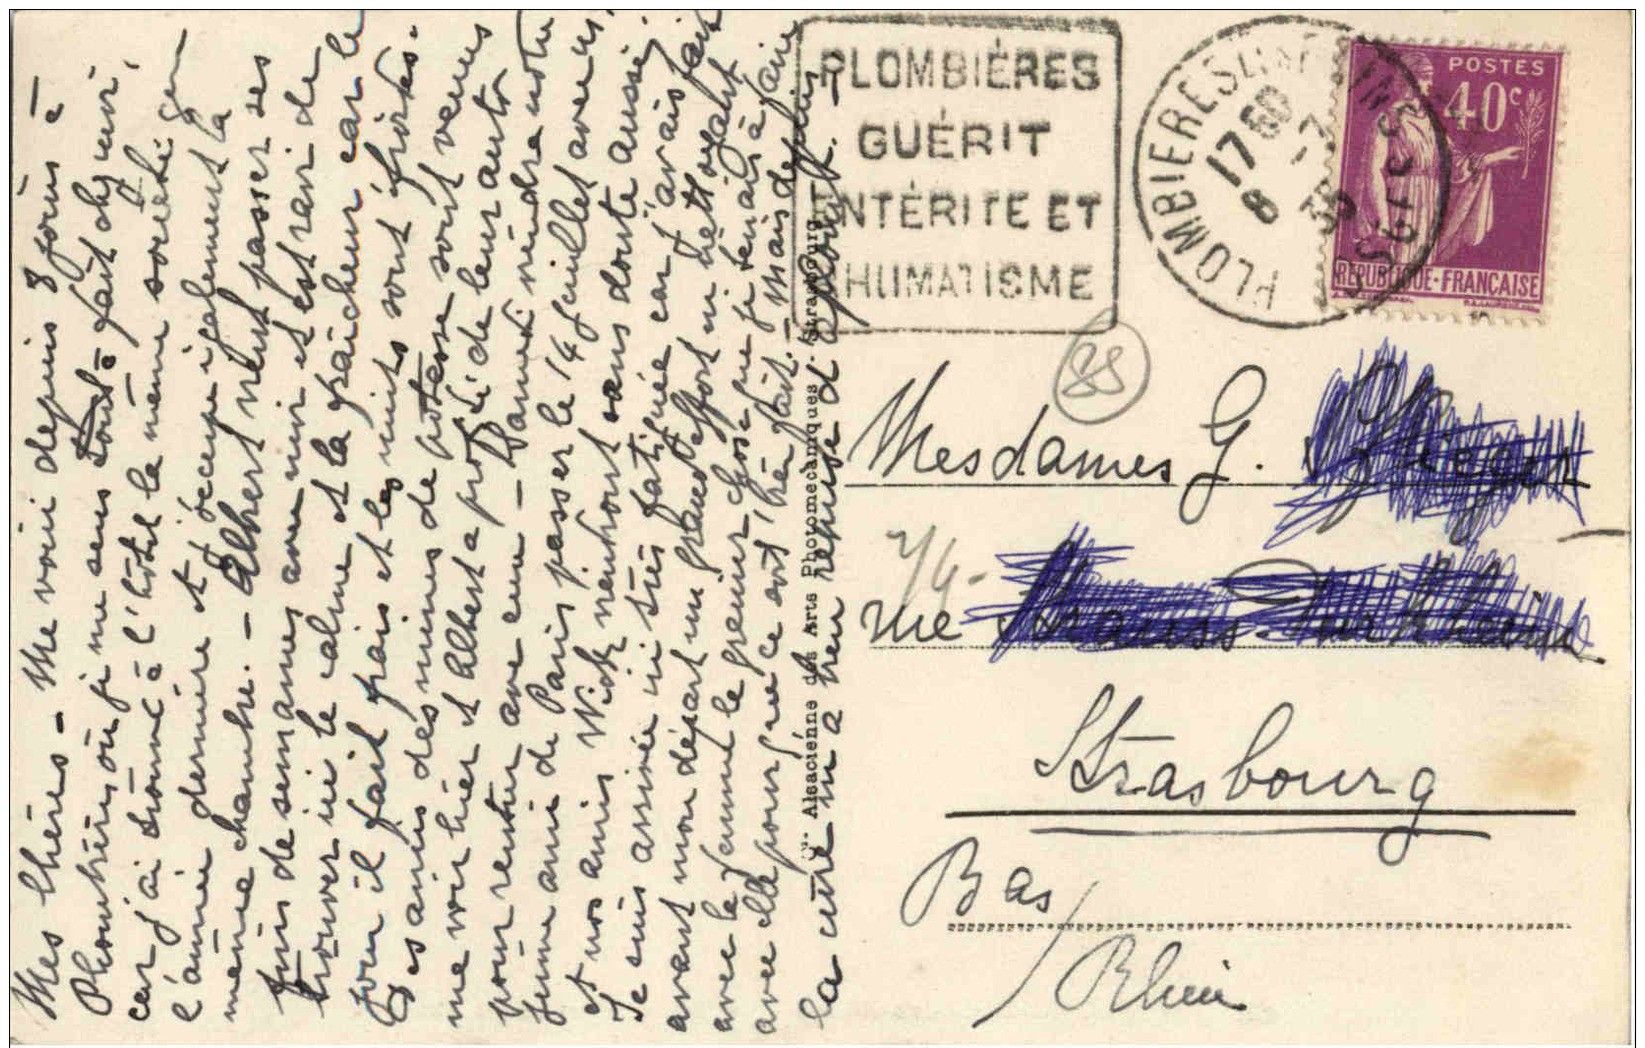 Mes chères – Me voici depuis 8 jours à
Plombières où je me sens tout à fait chez moi,
car j'ai trouvé à l'hôtel la même société qu
l'année dernière et j'occupe également la
même chambre. – Albert veut passer ses
fins de semaines avec moi et est ravi de
trouver ici le calme et la fraîcheur car le
jour il fait frais et les nuits sont froides.
Des amis des mines de potasse sont venus
me voir hier et Albert a profité de leur auto
pour rentrer avec eux – Samedi viendra notre
jeune ami de Paris passer le 14 juillet avec nous
et nos amis Wick viendront sans doute aussi.
Je suis arrivée ici très fatiguée car j'avais fait
avant mon départ un grand effort en nettoyant
avec la femme le grenier chose que je tenais à faire
avec elle pour que ce soit très bien fait. – Mais depuis
la cure m'a bien reprise d'aplomb. –
PLOMBIÈRES
GUÉRIT
ENTÉRITE ET
RHUMATISME
PLOMBIERES LES BAINS
VOSGES
17 60
8 -7
35
POSTES
40c
REPUBLIQUE-FRANÇAISE
Alsacienne des Arts Photomécaniques. Strasbourg
88
Mesdames G.
7/4-
rue
Strasbourg
Bas/
Rhin